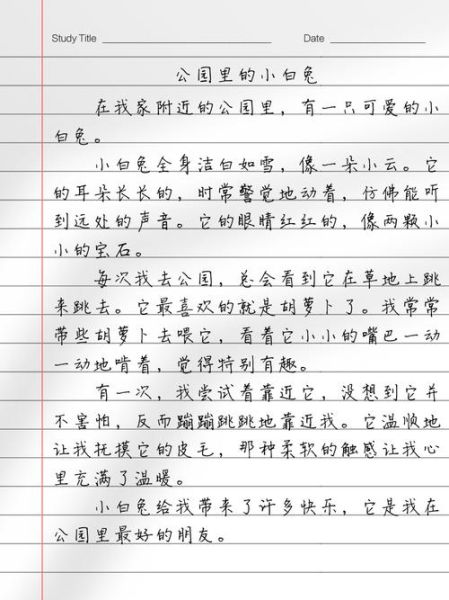 Study Title
Date
公园里的小白兔
在我家附近的公园里，有一只可爱的小
白兔。
小白兔全身洁白如雪，像一朵小云。它
的耳朵长长的，时常警觉地动着，仿佛能听
到远处的声音。它的眼睛红红的，像两颗小
小的宝石。
每次我去公园，总会看到它在草地上跳
来跳去。它最喜欢的就是胡萝卜了。我常常
带些胡萝卜去喂它，看着它小小的嘴巴一动
一动地啃着，觉得特别有趣。
有一次，我尝试着靠近它，没想到它并
不害怕，反而蹦蹦跳跳地靠近我。它温顺地
让我抚摸它的皮毛，那种柔软的触感让我心
里充满了温暖。
小白兔给我带来了许多快乐，它是我在
公园里最好的朋友。